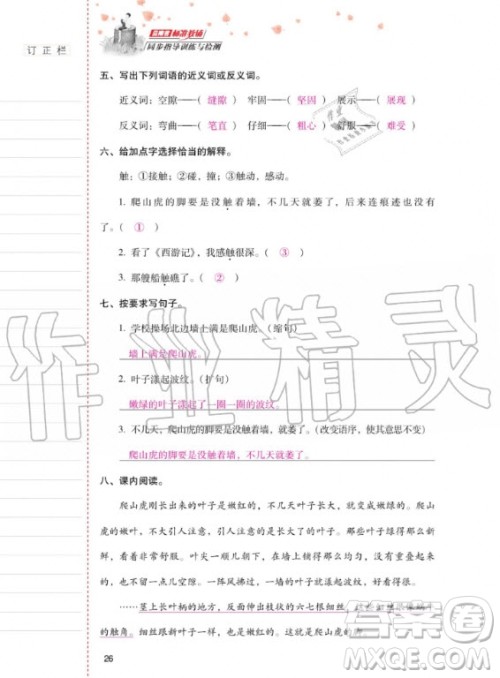 订 正 栏
同步指导训练与检测
五、写出下列词语的近义词或反义词。
近义词：空隙——（ 缝隙 ） 牢固——（ 坚固 ） 展示——（ 展现 ）
反义词：弯曲——（ 笔直 ） 仔细——（ 粗心 ） 舒服——（ 难受 ）
六、给加点字选择恰当的解释。
触：①接触；②碰，撞；③触动，感动。
1. 爬山虎的脚要是没触着墙，不几天就萎了，后来连痕迹也没有了。（ ① ）
2. 看了《西游记》，我感触很深。（ ③ ）
3. 那艘船触礁了。（ ② ）
七、按要求写句子。
1. 学校操场北边墙上满是爬山虎。（缩句）
墙上满是爬山虎。
2. 叶子漾起波纹。（扩句）
嫩绿的叶子漾起了一圈一圈的波纹。
3. 不几天，爬山虎的脚要是没触着墙，就萎了。（改变语序，使其意思不变）
爬山虎的脚要是没触着墙，不几天就萎了。
八、课内阅读。
爬山虎刚长出来的叶子是嫩红的，不几天叶子长大，就变成嫩绿的。爬山虎的嫩叶，不大引人注意，引人注意的是长大了的叶子。那些叶子绿得那么新鲜，看着非常舒服。叶尖一顺儿朝下，在墙上铺得那么均匀，没有重叠起来的，也不留一点儿空隙。一阵风拂过，一墙的叶子就漾起波纹，好看得很。
……茎上长叶柄的地方，反面伸出枝状的六七根细丝，
的触角。细丝跟新叶子一样，也是嫩红的。这就是爬山虎的脚。
26
作业精灵
答案圈
MXQE.COM